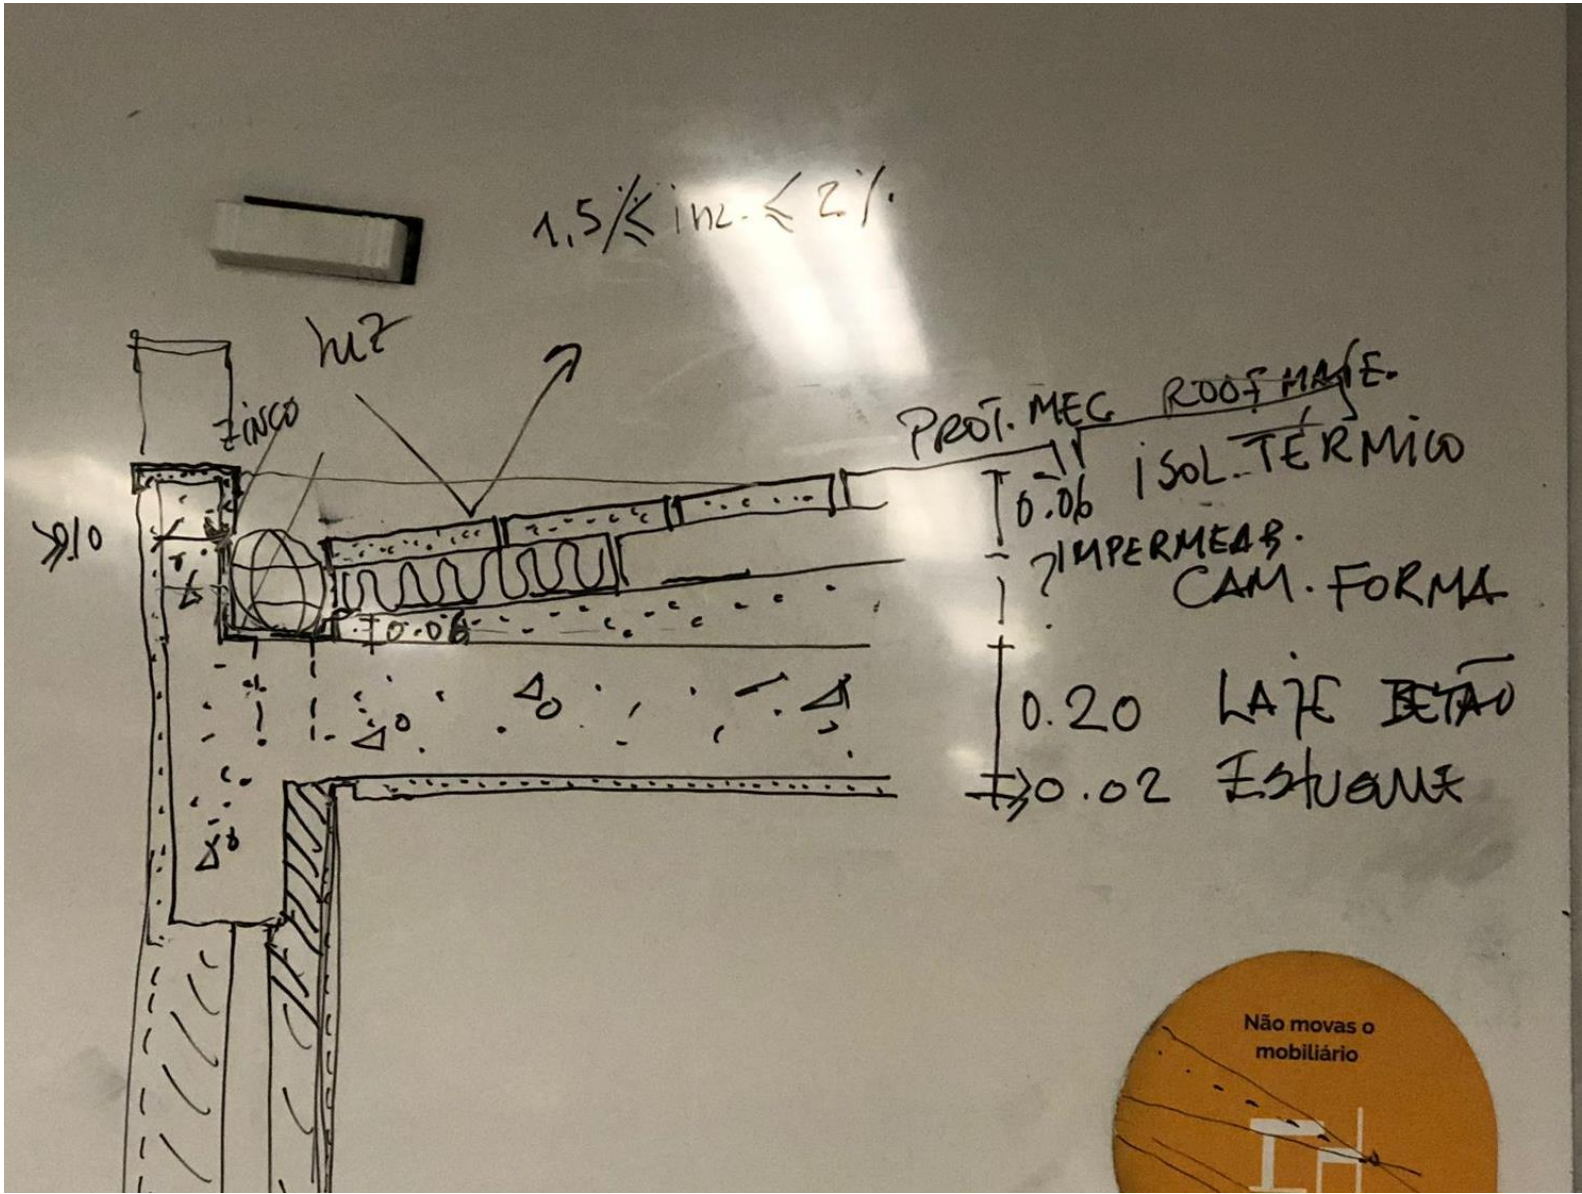 1,5% ≤ inc. ≤ 2%
luz
ZINCO
PROT. MEC ROOFMATE.
0.06 ISOL. TÉRMICO
? IMPERMEAB.
CAM. FORMA
0.06
0.20 LAJE BETÃO
0.02 ESTUQUE
Não movas o
mobiliário